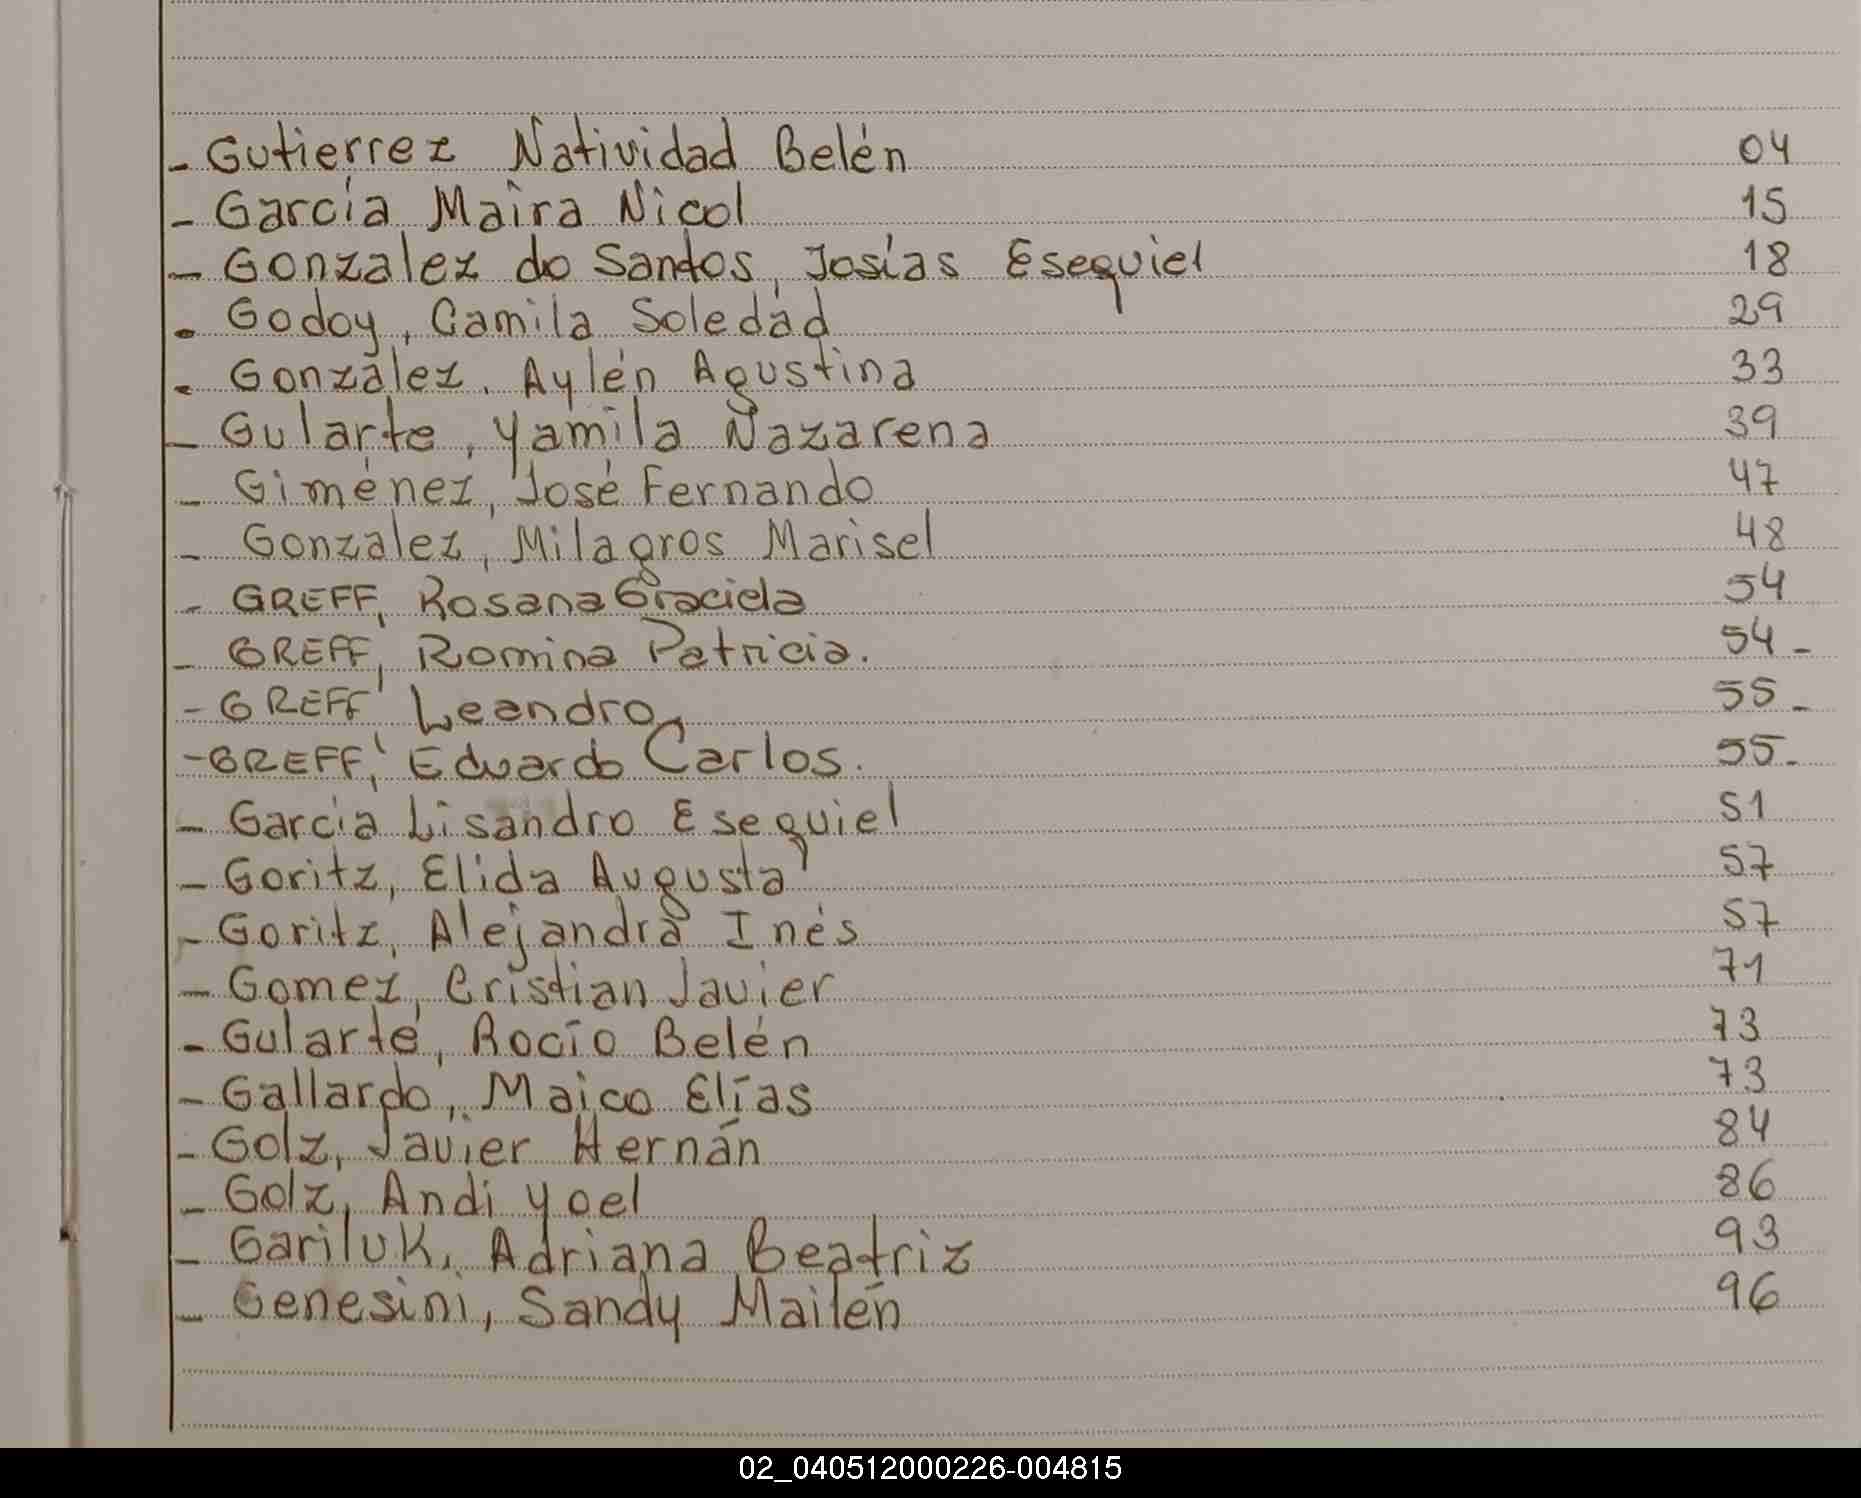 - Gutierrez Natividad Belén 04
- García Maira Nicol 15
- Gonzalez do Santos, Josías Esequiel 18
- Godoy, Camila Soledad 29
- González, Aylén Agustina 33
- Gularte, Yamila Nazarena 39
- Giménez, José Fernando 47
- Gonzalez, Milagros Marisel 48
- GREFF, Rosana Graciela 54
- GREFF, Romina Patricia. 54-
- GREFF Leandro 55-
- GREFF, Eduardo Carlos. 55-
- García Lisandro Esequiel 51
- Goritz, Elida Augusta 57
- Goritz, Alejandra Inés 57
- Gomez, Cristian Javier 71
- Gularte, Rocío Belén 73
- Gallardo, Maico Elías 73
- Golz, Javier Hernán 84
- Golz, Andi Yoel 86
- Gariluk, Adriana Beatriz 93
- Genesini, Sandy Mailén 96
02_040512000226-004815